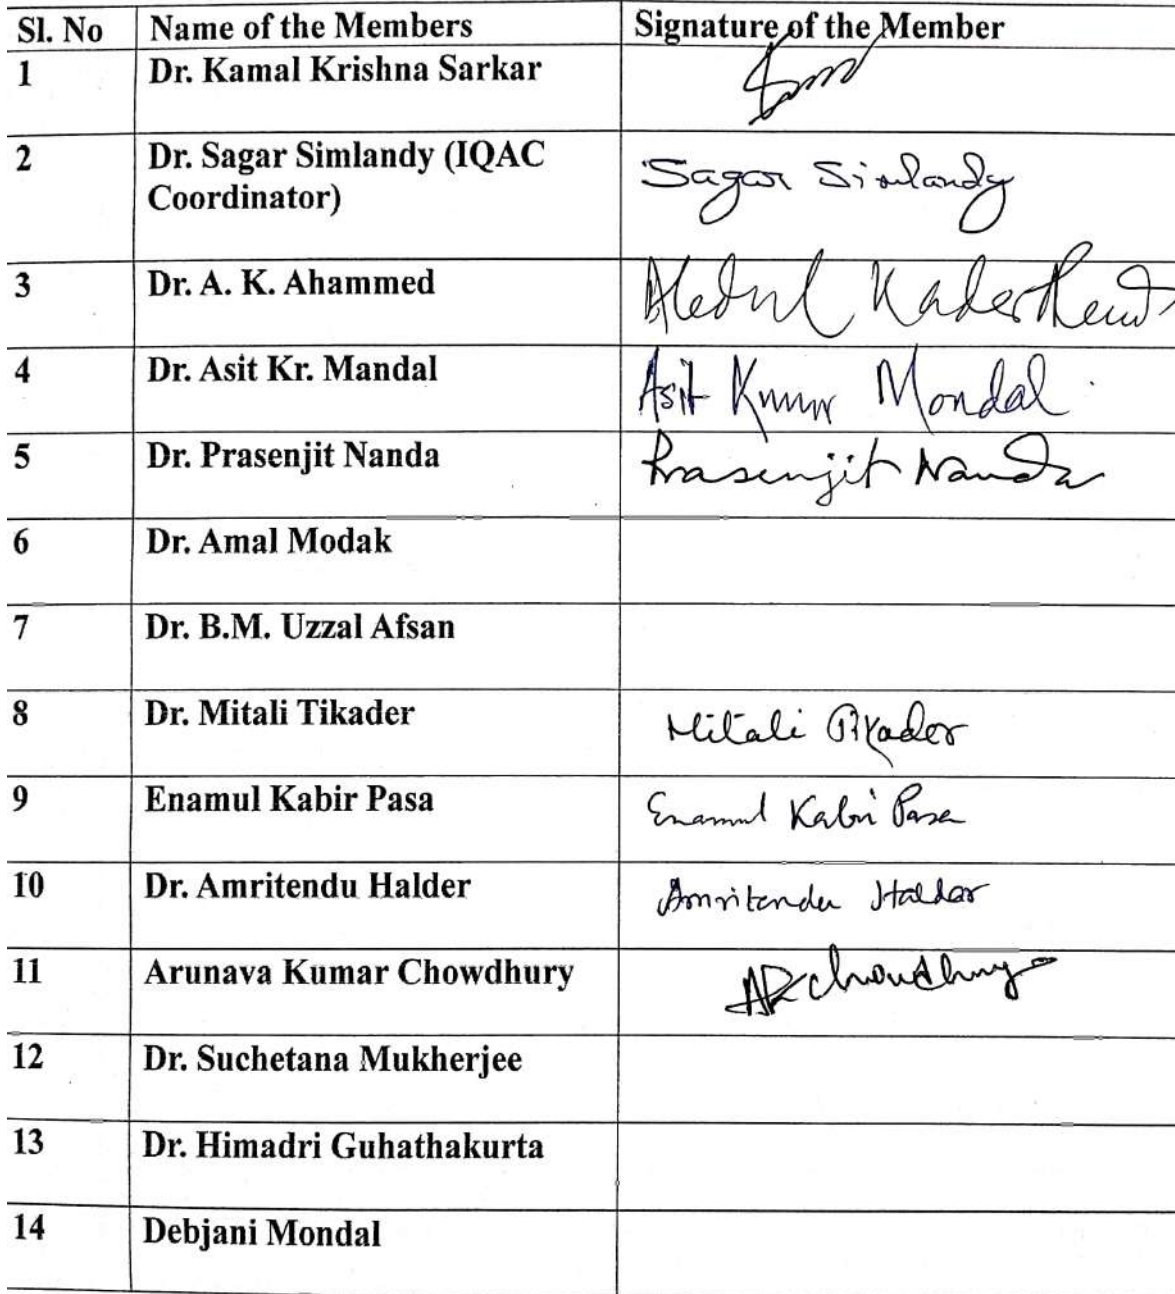 Sl. No Name of the Members Signature of the Member
1 Dr. Kamal Krishna Sarkar
2 Dr. Sagar Simlandy (IQAC Sagar Simlandy
Coordinator)
3 Dr. A. K. Ahammed Abdul Kader
4 Dr. Asit Kr. Mandal Asit Kumar Mondal
5 Dr. Prasenjit Nanda Prasenjit Nanda
6 Dr. Amal Modak
7 Dr. B.M. Uzzal Afsan
8 Dr. Mitali Tikader Mitali Tikader
9 Enamul Kabir Pasa Enamul Kabir Pasa
10 Dr. Amritendu Halder Amritendu Haldar
11 Arunava Kumar Chowdhury AK Choudhury
12 Dr. Suchetana Mukherjee
13 Dr. Himadri Guhathakurta
14 Debjani Mondal